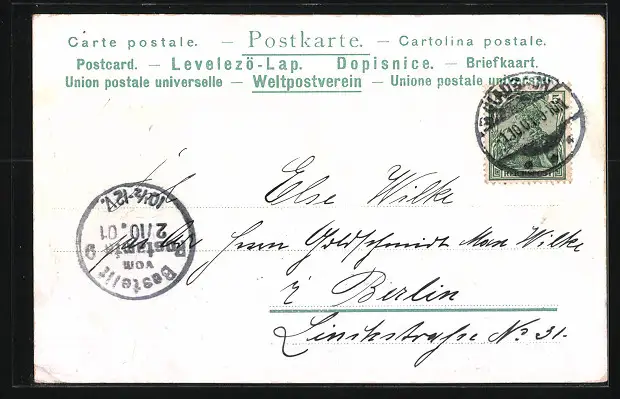 Carte postale. — Postkarte. — Cartolina postale.
Postcard. — Levelező-Lap. Dopisnice. — Briefkaart.
Union postale universelle — Weltpostverein — Unione postale univers
Else Wilke
Herrn Goldschmidt Max Wilke
Berlin
Linkstraße No. 31.
Bestellt
vom
Postamte
9
2/10.01
10½-12V.